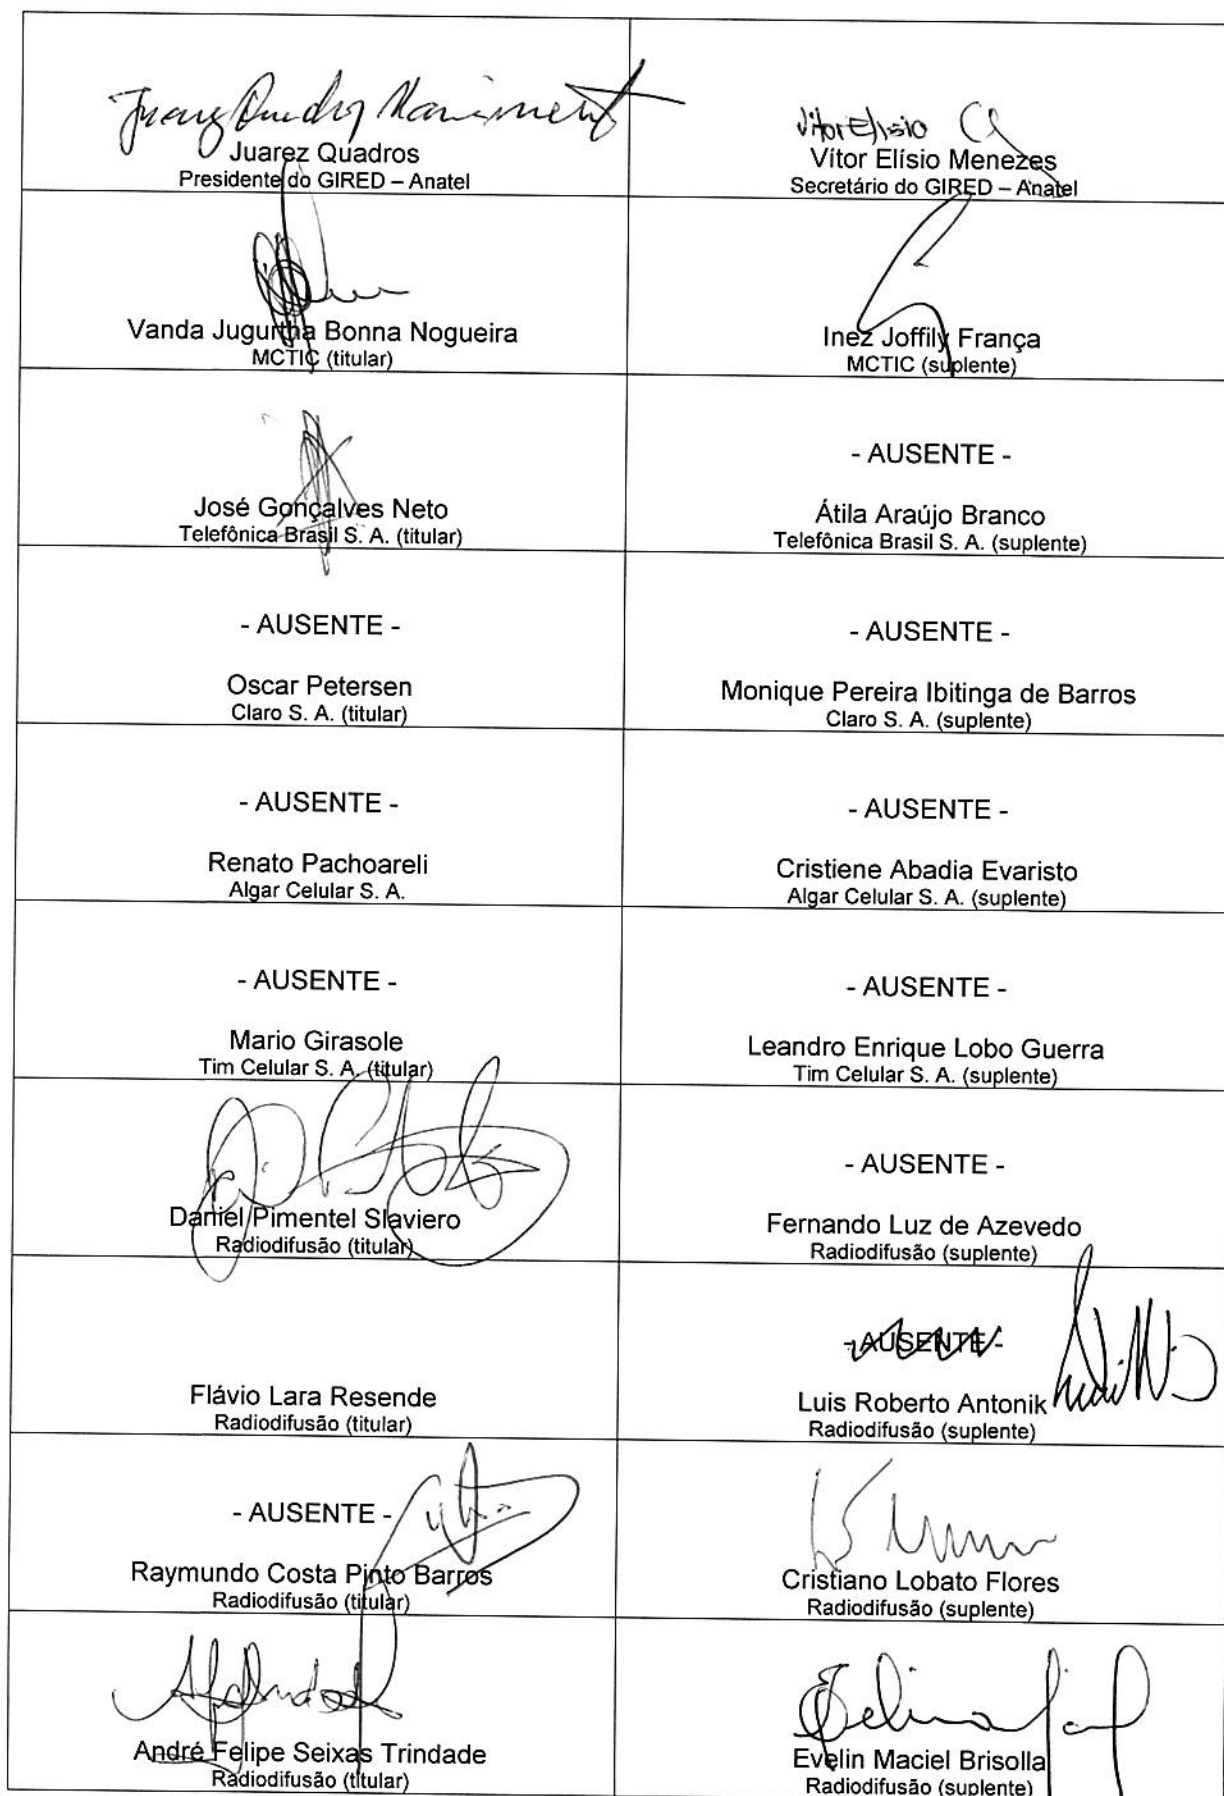 Juarez Quadros Nascimento
Juarez Quadros
Presidente do GIRED – Anatel
Vitor Elisio
Vítor Elísio Menezes
Secretário do GIRED – Anatel
Vanda Jugurtha Bonna Nogueira
MCTIC (titular)
Inez Joffily França
MCTIC (suplente)
José Gonçalves Neto
Telefônica Brasil S. A. (titular)
- AUSENTE -
Átila Araújo Branco
Telefônica Brasil S. A. (suplente)
- AUSENTE -
Oscar Petersen
Claro S. A. (titular)
- AUSENTE -
Monique Pereira Ibitinga de Barros
Claro S. A. (suplente)
- AUSENTE -
Renato Pachoareli
Algar Celular S. A.
- AUSENTE -
Cristiene Abadia Evaristo
Algar Celular S. A. (suplente)
- AUSENTE -
Mario Girasole
Tim Celular S. A. (titular)
- AUSENTE -
Leandro Enrique Lobo Guerra
Tim Celular S. A. (suplente)
Daniel Pimentel Slaviero
Radiodifusão (titular)
- AUSENTE -
Fernando Luz de Azevedo
Radiodifusão (suplente)
Flávio Lara Resende
Radiodifusão (titular)
- AUSENTE -
Luis Roberto Antonik
Radiodifusão (suplente)
- AUSENTE -
Raymundo Costa Pinto Barros
Radiodifusão (titular)
Cristiano Lobato Flores
Radiodifusão (suplente)
André Felipe Seixas Trindade
Radiodifusão (titular)
Evelin Maciel Brisolla
Radiodifusão (suplente)